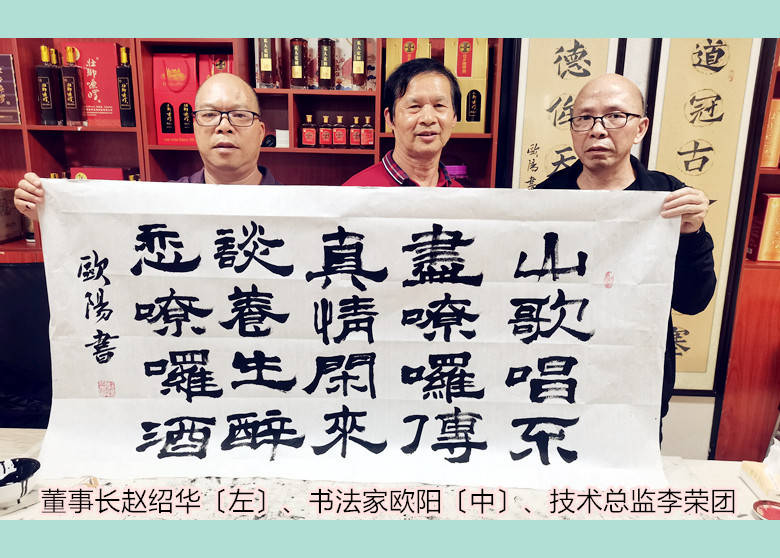 道冠古
德侔天
歐陽書
山歌唱不
盡嘹囉傳
真情閑來
談養生醉
恋嘹囉酒
歐陽書
董事长赵绍华〔左〕、书法家欧阳〔中〕、技术总监李荣团